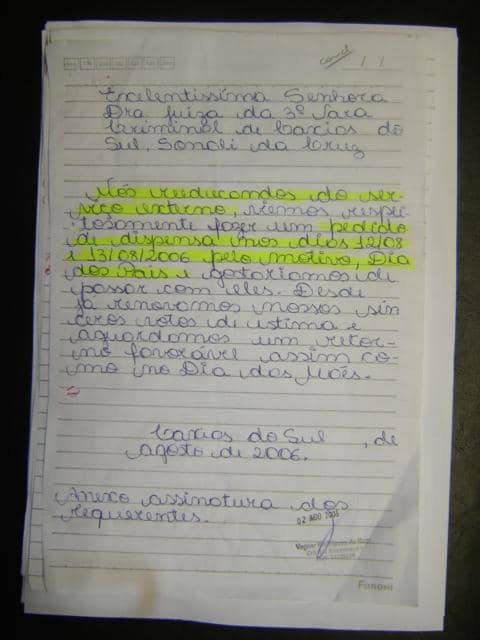 / /
Excelentissima Senhora
Dra juiza da 3ª Vara
Criminal de Caxias do
Sul, Sonali da Cruz
Nós reeducandos do ser-
viço externo, viemos respei-
tosamente fazer um pedido
de dispensa nos dias 12/08
e 13/08/2006 pelo motivo, Dia
dos Pais e gostariamos de
passar com eles. Desde
já renovamos nossos sin
ceros votos de estima e
aguardamos um retor-
no favorável assim co-
mo no Dia das Mães.
Caxias do Sul , de
agosto de 2006.
Anexo assinatura dos
requerentes.
02 AGO 2006
Fanoni